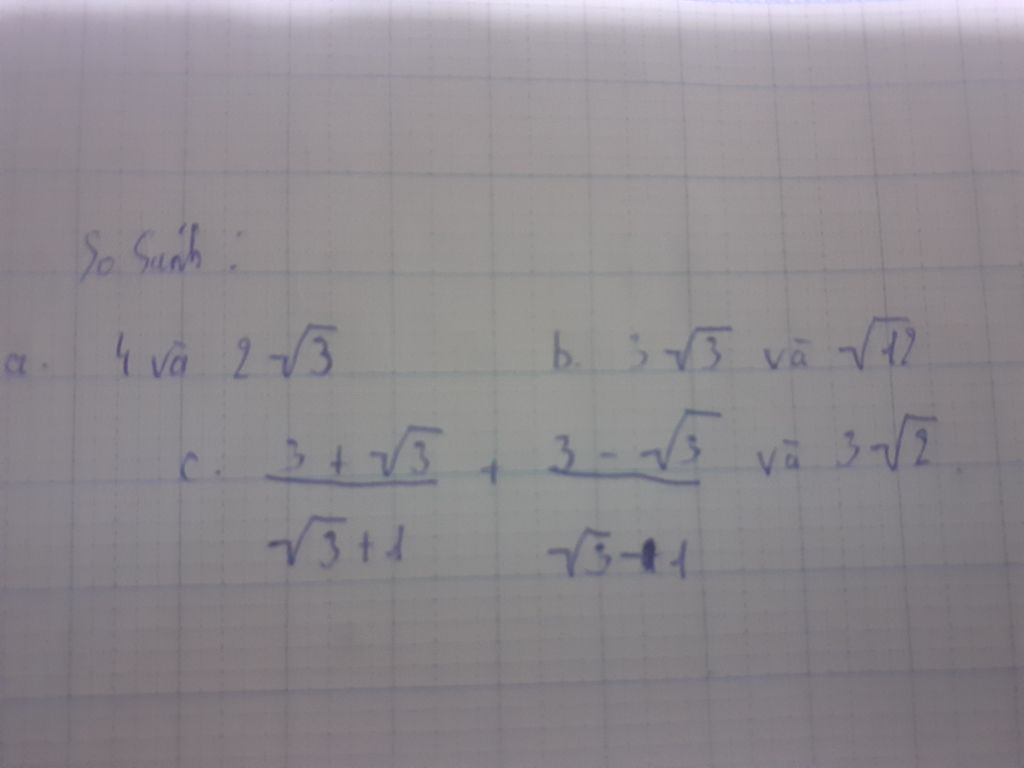 So sánh :
a. 4 và 2√3 b. 3√3 và √12
c. (3 + √3)/(√3 + 1) + (3 - √3)/(√3 - 1) và 3√2.